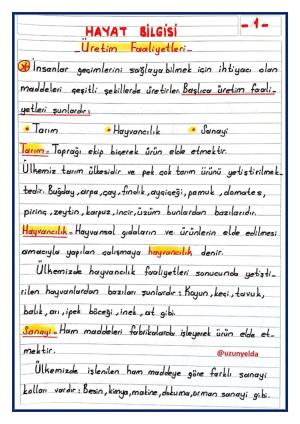 HAYAT BİLGİSİ
- 1 -
Üretim Faaliyetleri
İnsanlar geçimlerini sağlayabilmek için ihtiyacı olan
maddeleri çeşitli şekillerde üretirler. Başlıca üretim faali-
yetleri şunlardır:
• Tarım • Hayvancılık • Sanayi
Tarım = Toprağı ekip biçerek ürün elde etmektir.
Ülkemiz tarım ülkesidir ve pek çok tarım ürünü yetiştirilmek-
tedir. Buğday, arpa, çay, fındık, ayçiçeği, pamuk, domates,
pirinç, zeytin, karpuz, incir, üzüm bunlardan bazılarıdır.
Hayvancılık = Hayvansal gıdaların ve ürünlerin elde edilmesi
amacıyla yapılan çalışmaya hayvancılık denir.
Ülkemizde hayvancılık faaliyetleri sonucunda yetişti-
rilen hayvanlardan bazıları şunlardır: Koyun, keçi, tavuk,
balık, arı, ipek böceği, inek, at gibi.
Sanayi = Ham maddeleri fabrikalarda işleyerek ürün elde et-
mektir.
@uzunyelda
Ülkemizde işlenilen ham maddeye göre farklı sanayi
kolları vardır: Besin, kimya, makine, dokuma, orman sanayi gibi.